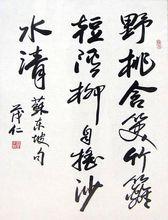 野桃含笑竹籬
短溪柳自搖沙
水清
蘇東坡句
茂仁